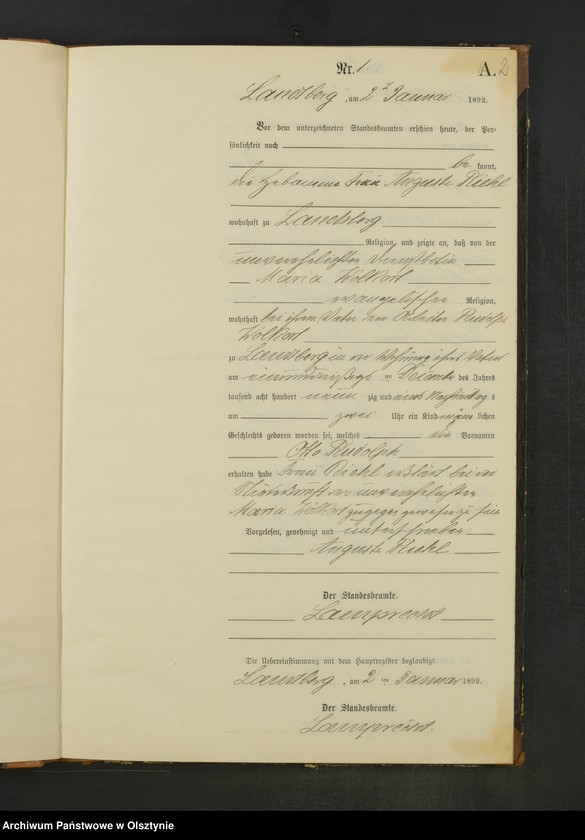 Nr. 1
A. 2
Landsberg, am 2ten Januar 1892.
Vor dem unterzeichneten Standesbeamten erschien heute, der Per-
sönlichkeit nach
be kannt,
die Hebamme Frau Auguste Diehl
wohnhaft zu Landsberg
Religion, und zeigte an, daß von der
unverehelichten Dienstbotin
Maria Wölkart
evangelischer Religion,
wohnhaft bei ihrem Vater dem Arbeiter Rudolph
Wölkart
zu Landsberg in der Wohnung ihres Vaters
am einunddreißigsten Dezember des Jahres
tausend acht hundert neun zig und eins Nachmittag s
um zwei Uhr ein Kind männ lichen
Geschlechts geboren worden sei, welches die Vornamen
Otto Rudolph
erhalten habe Frau Diehl erklärt bei der
Niederkunft der unverehelichten
Maria Wölkart zugegen gewesen zu sein
Vorgelesen, genehmigt und unterschrieben
Auguste Diehl
Der Standesbeamte.
Lamprecht
Die Uebereinstimmung mit dem Hauptregister beglaubigt.
Landsberg, am 2ten Januar 1892.
Der Standesbeamte.
Lamprecht.
Archiwum Państwowe w Olsztynie